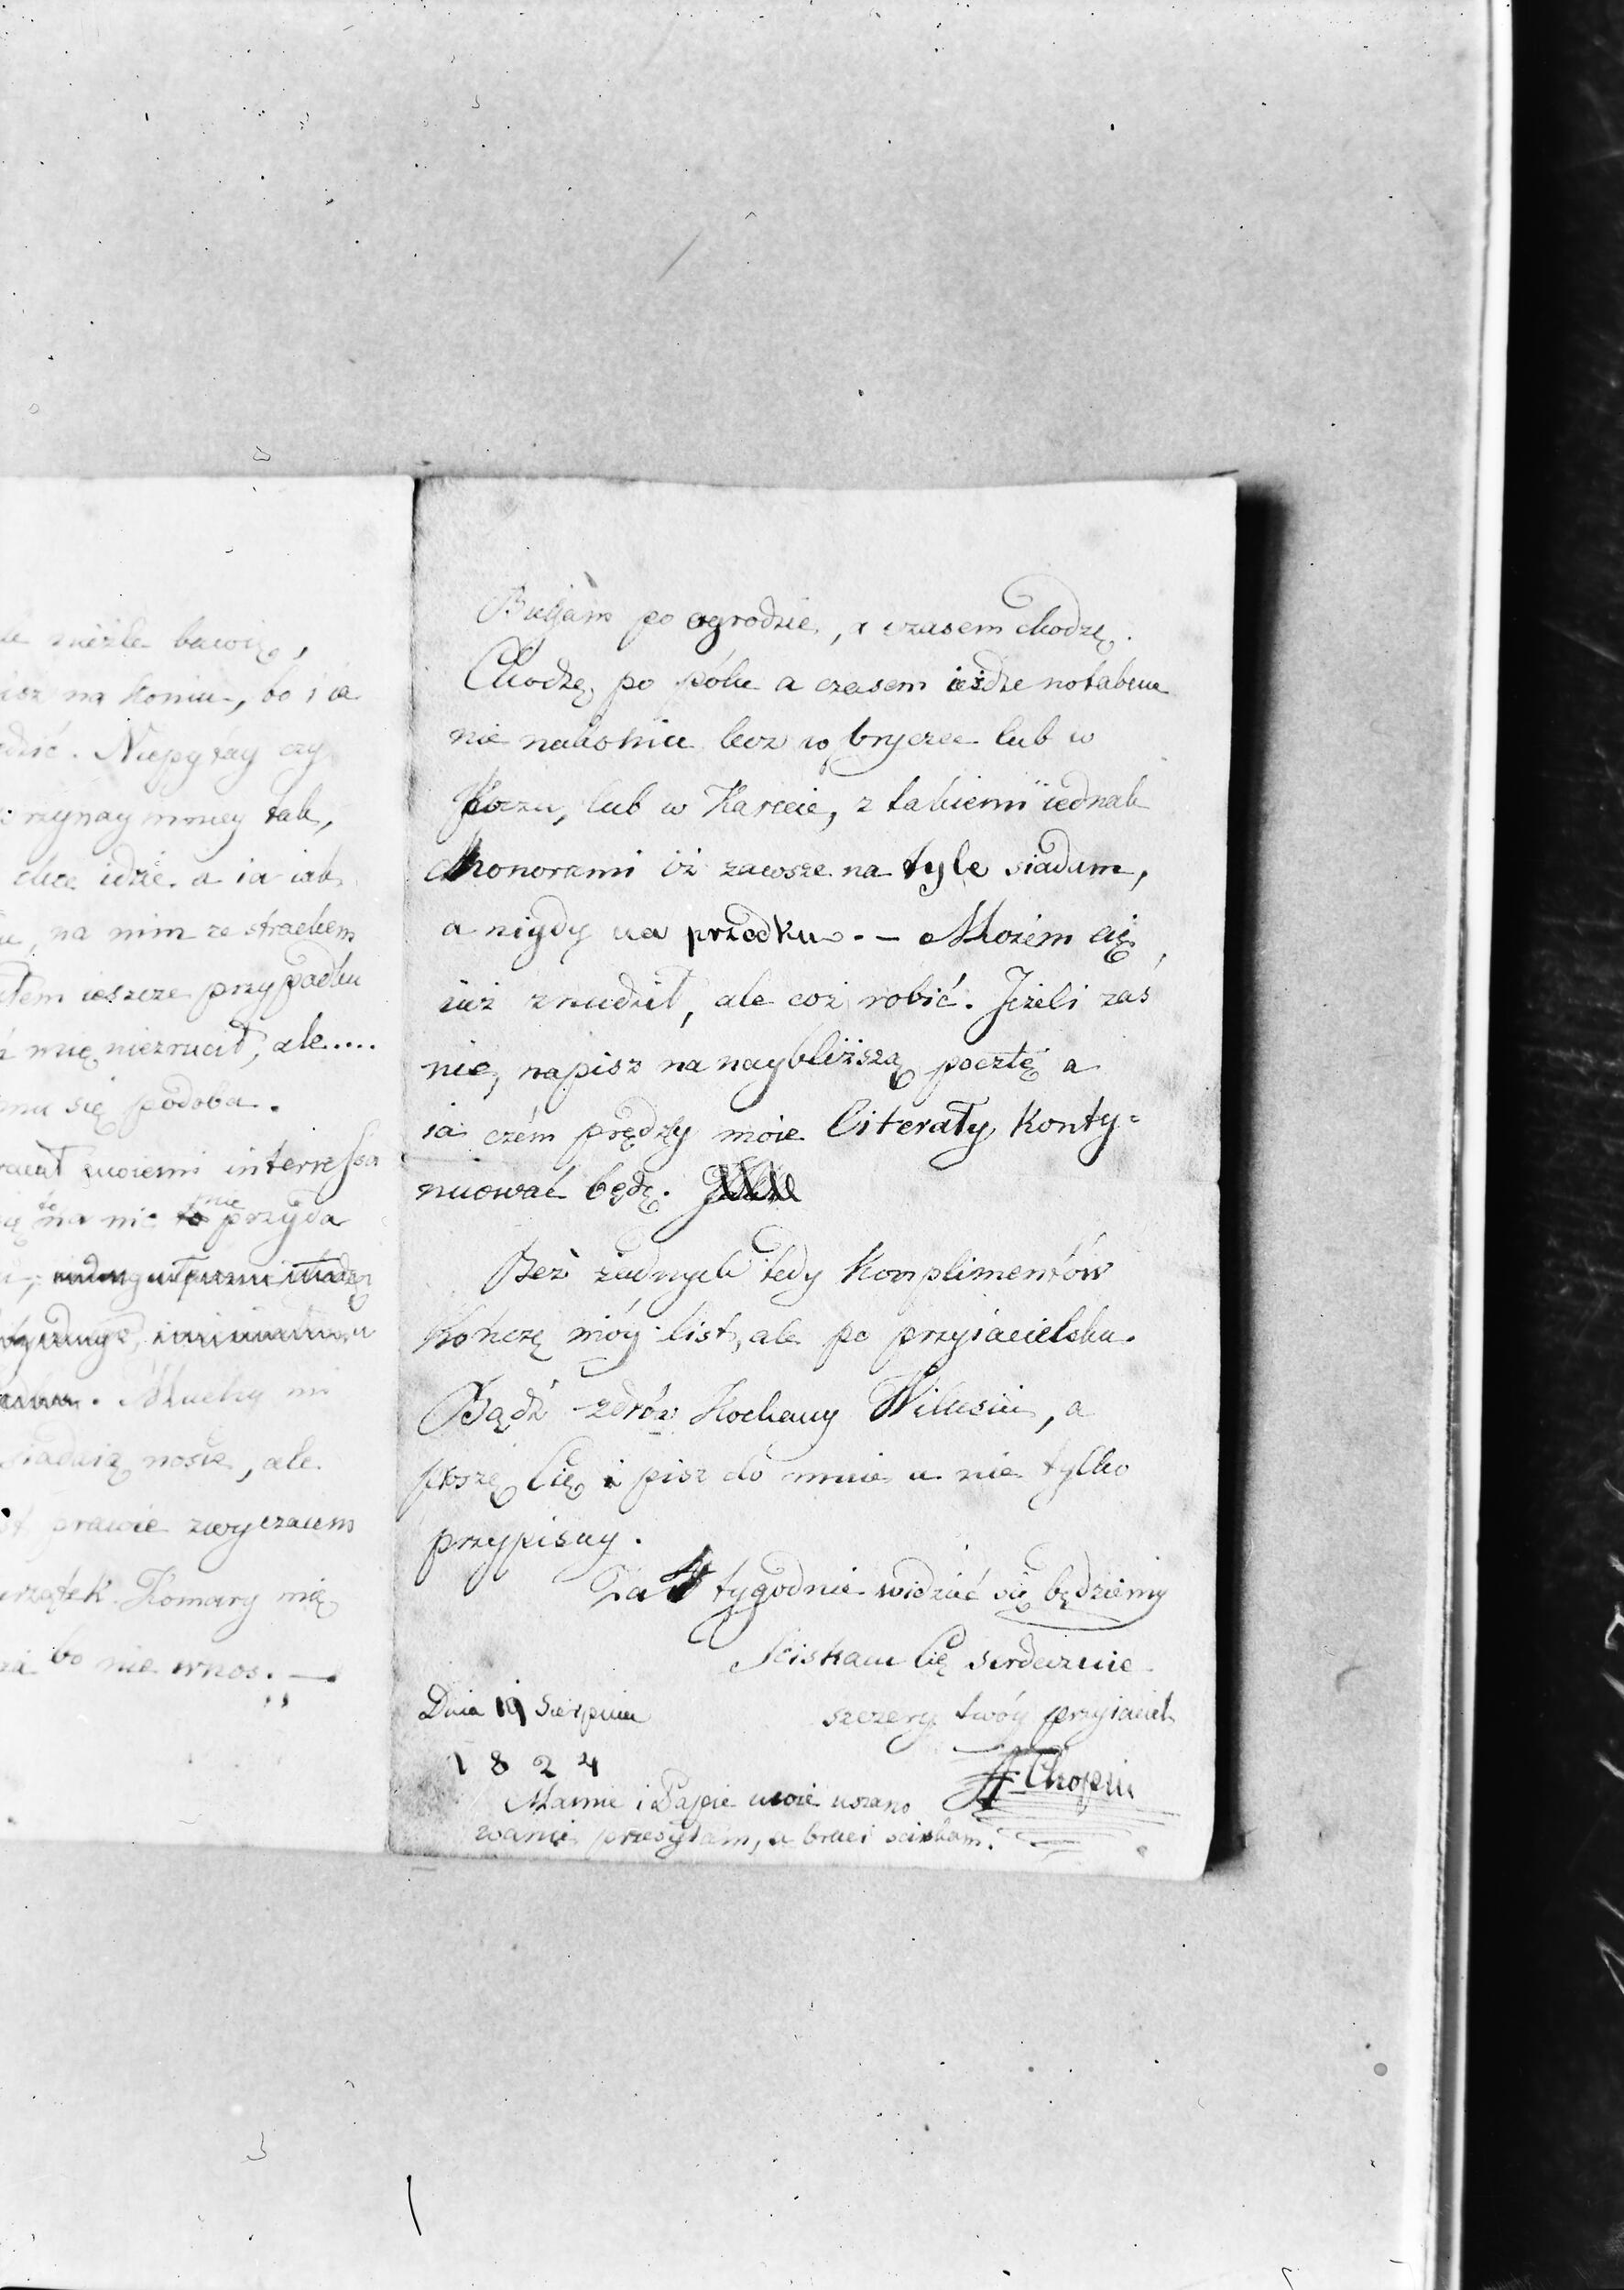 le nieźle bawię,
isz na koniu, bo i ia
dzić. Niepytay czy
rzynaymniey tak,
chce idzie, a ia iak
na nim ze strachem
ieszcze przypadku
mię niezrucił, ale.....
mu się podoba.
moiemi interressa
na nic to nie przyda
Muchy mi
siadaią nosie, ale
prawie zwyczaiem
Komary mię
bo nie w nos. —
Bujam po ogrodzie, a czasem chodzę.
Chodzę po pólu a czasem ieżdże notabene
nie nakoniu lecz w bryczce lub w
Koczu, lub w Karecie, z takiemi iednak
honorami iż zawsze na tyle siadam,
a nigdy na przedku. — Możem cię
iuż znudził, ale coż robić. Jeżeli zaś
nie, napisz na naybliższą pocztę a
ia czém prędzy moie literały konty=
nuować będę.
Bez żadnych tedy Komplimentów
Kończę móy list, ale po przyiacielsku.
Bądź zdrów Kochany Wilusiu, a
proszę Cię i pisz do mnie a nie tylko
przypisuy.
Za 4 tygodnie widzieć się będziemy
Sciskam Cię serdecznie
szczery twóy przyiaciel
Dnia 19 Sierpnia
1 8 2 4
F Chopin
Mamie i Papie moie uszano
wanie przesyłam, a braci sciskam.